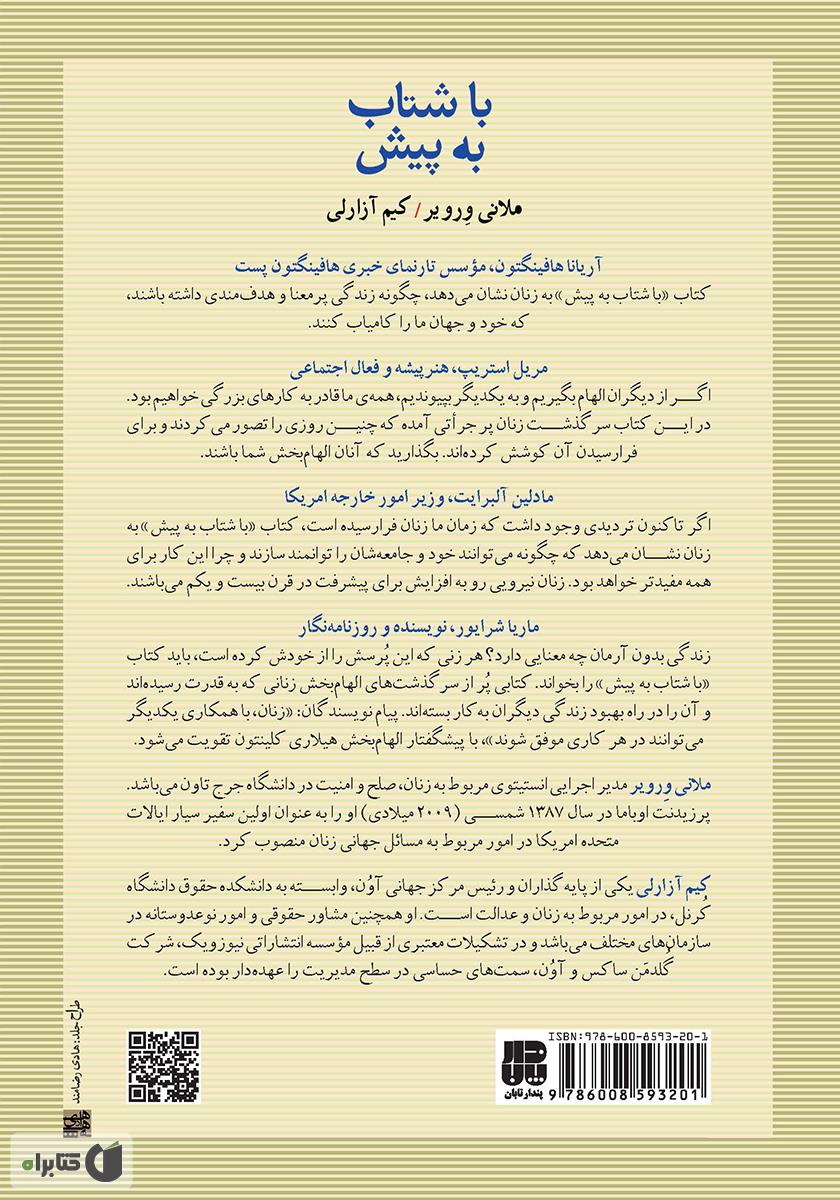 با شتاب
به پیش
ملانی وِرویر / کیم آزارلی
آریانا هافینگتون، مؤسس تارنمای خبری هافینگتون پست
کتاب «با شتاب به پیش» به زنان نشان می‌دهد، چگونه زندگی پرمعنا و هدف‌مندی داشته باشند،
که خود و جهان ما را کامیاب کنند.
مریل استریپ، هنرپیشه و فعال اجتماعی
اگر از دیگران الهام بگیریم و به یکدیگر بپیوندیم، همه‌ی ما قادر به کارهای بزرگی خواهیم بود.
در این کتاب سرگذشت زنان پر جرأتی آمده که چنین روزی را تصور می‌کردند و برای
فرارسیدن آن کوشش کرده‌اند. بگذارید که آنان الهام‌بخش شما باشند.
مادلین آلبرایت، وزیر امور خارجه امریکا
اگر تاکنون تردیدی وجود داشت که زمان ما زنان فرارسیده است، کتاب «با شتاب به پیش» به
زنان نشان می‌دهد که چگونه می‌توانند خود و جامعه‌شان را توانمند سازند و چرا این کار برای
همه مفیدتر خواهد بود. زنان نیرویی رو به افزایش برای پیشرفت در قرن بیست و یکم می‌باشند.
ماریا شرایور، نویسنده و روزنامه‌نگار
زندگی بدون آرمان چه معنایی دارد؟ هر زنی که این پُرسش را از خودش کرده است، باید کتاب
«با شتاب به پیش» را بخواند. کتابی پُر از سرگذشت‌های الهام‌بخش زنانی که به قدرت رسیده‌اند
و آن را در راه بهبود زندگی دیگران به کار بسته‌اند. پیام نویسندگان: «زنان، با همکاری یکدیگر
می‌توانند در هر کاری موفق شوند»، با پیشگفتار الهام‌بخش هیلاری کلینتون تقویت می‌شود.
ملانی وِرویر مدیر اجرایی انستیتوی مربوط به زنان، صلح و امنیت در دانشگاه جرج تاون می‌باشد.
پرزیدنت اوباما در سال ۱۳۸۷ شمسی (۲۰۰۹ میلادی) او را به عنوان اولین سفیر سیار ایالات
متحده امریکا در امور مربوط به مسائل جهانی زنان منصوب کرد.
کیم آزارلی یکی از پایه گذاران و رئیس مرکز جهانی آوُن، وابسته به دانشکده حقوق دانشگاه
کُرنل، در امور مربوط به زنان و عدالت است. او همچنین مشاور حقوقی و امور نوعدوستانه در
سازمان‌های مختلف می‌باشد و در تشکیلات معتبری از قبیل مؤسسه انتشاراتی نیوزویک، شرکت
گُلدمَن ساکس و آوُن، سمت‌های حساسی در سطح مدیریت را عهده‌دار بوده است.
طراح جلد: هادی رضامند
ISBN: 978-600-8593-20-1
پندار تابان
9 786008 593201
کتابراه